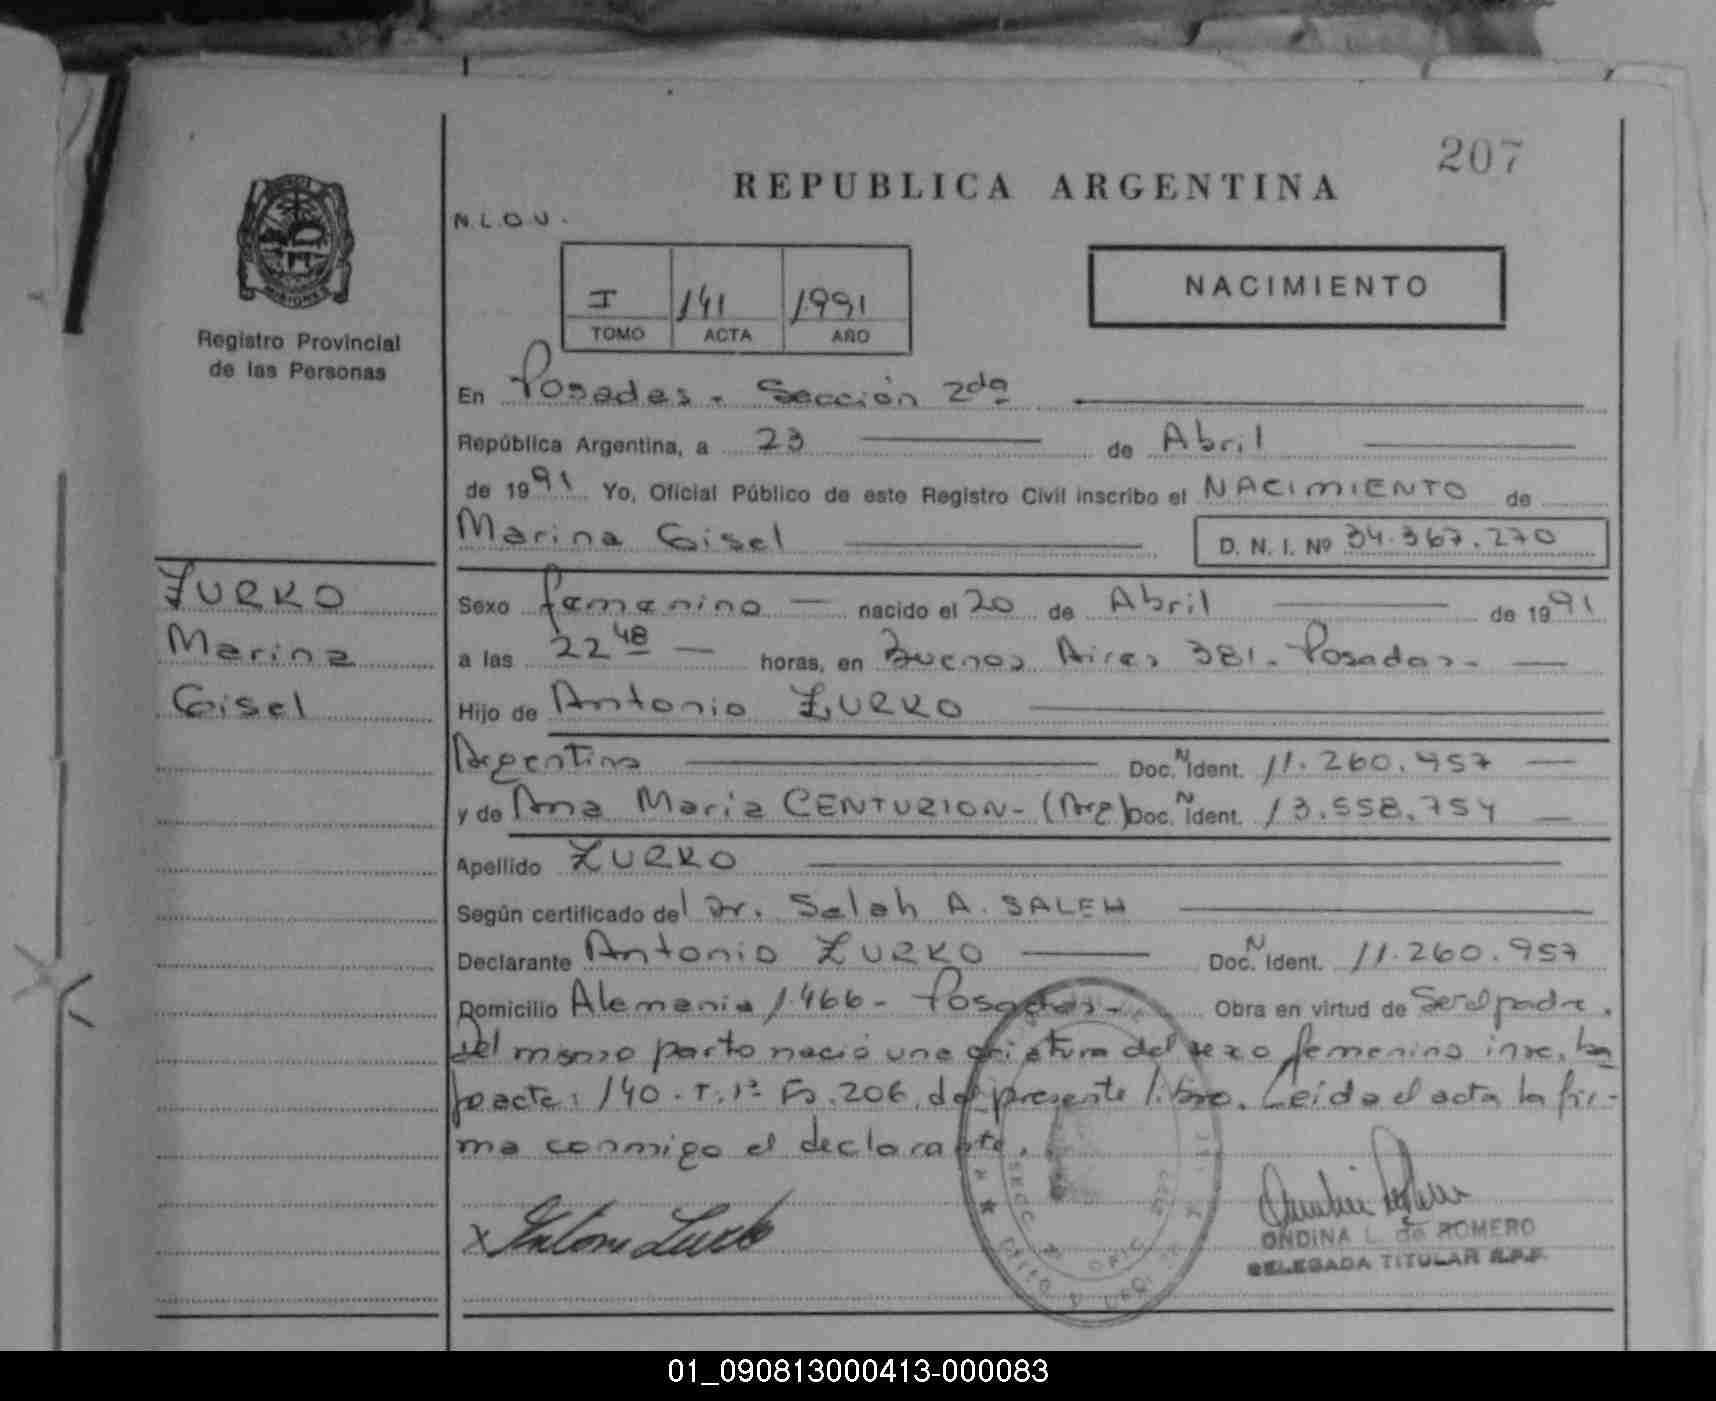 207
REPUBLICA ARGENTINA
N.L.O.U.
NACIMIENTO
I 141 1991
TOMO ACTA AÑO
MISIONES
Registro Provincial
de las Personas
En Posadas - Sección 2da
República Argentina, a 23 de Abril
de 1991 Yo, Oficial Público de este Registro Civil inscribo el NACIMIENTO de
Marina Gisel D. N. I. Nº 34.367.270
ZURKO
Marina
Gisel
Sexo femenino nacido el 20 de Abril de 1991
a las 22 48 horas, en Buenos Aires 381 - Posadas -
Hijo de Antonio ZURKO
Argentino Doc. N Ident. 11.260.957
y de Ana Maria CENTURION - (Arg) Doc. N Ident. 13.558.754
Apellido ZURKO
Según certificado del Dr. Salah A. SALEH
Declarante Antonio ZURKO Doc. N Ident. 11.260.957
Domicilio Alemania 1.466 - Posadas - Obra en virtud de Ser el padre.
Del mismo parto nació una criatura del sexo femenino insc. ba
jo acta: 140 - T. 1º Fs. 206 del presente libro. Leída el acta la fir-
ma conmigo el declarante.
x Antonio Zurko
ONDINA L. de ROMERO
DELEGADA TITULAR R.P.P.
01_090813000413-000083